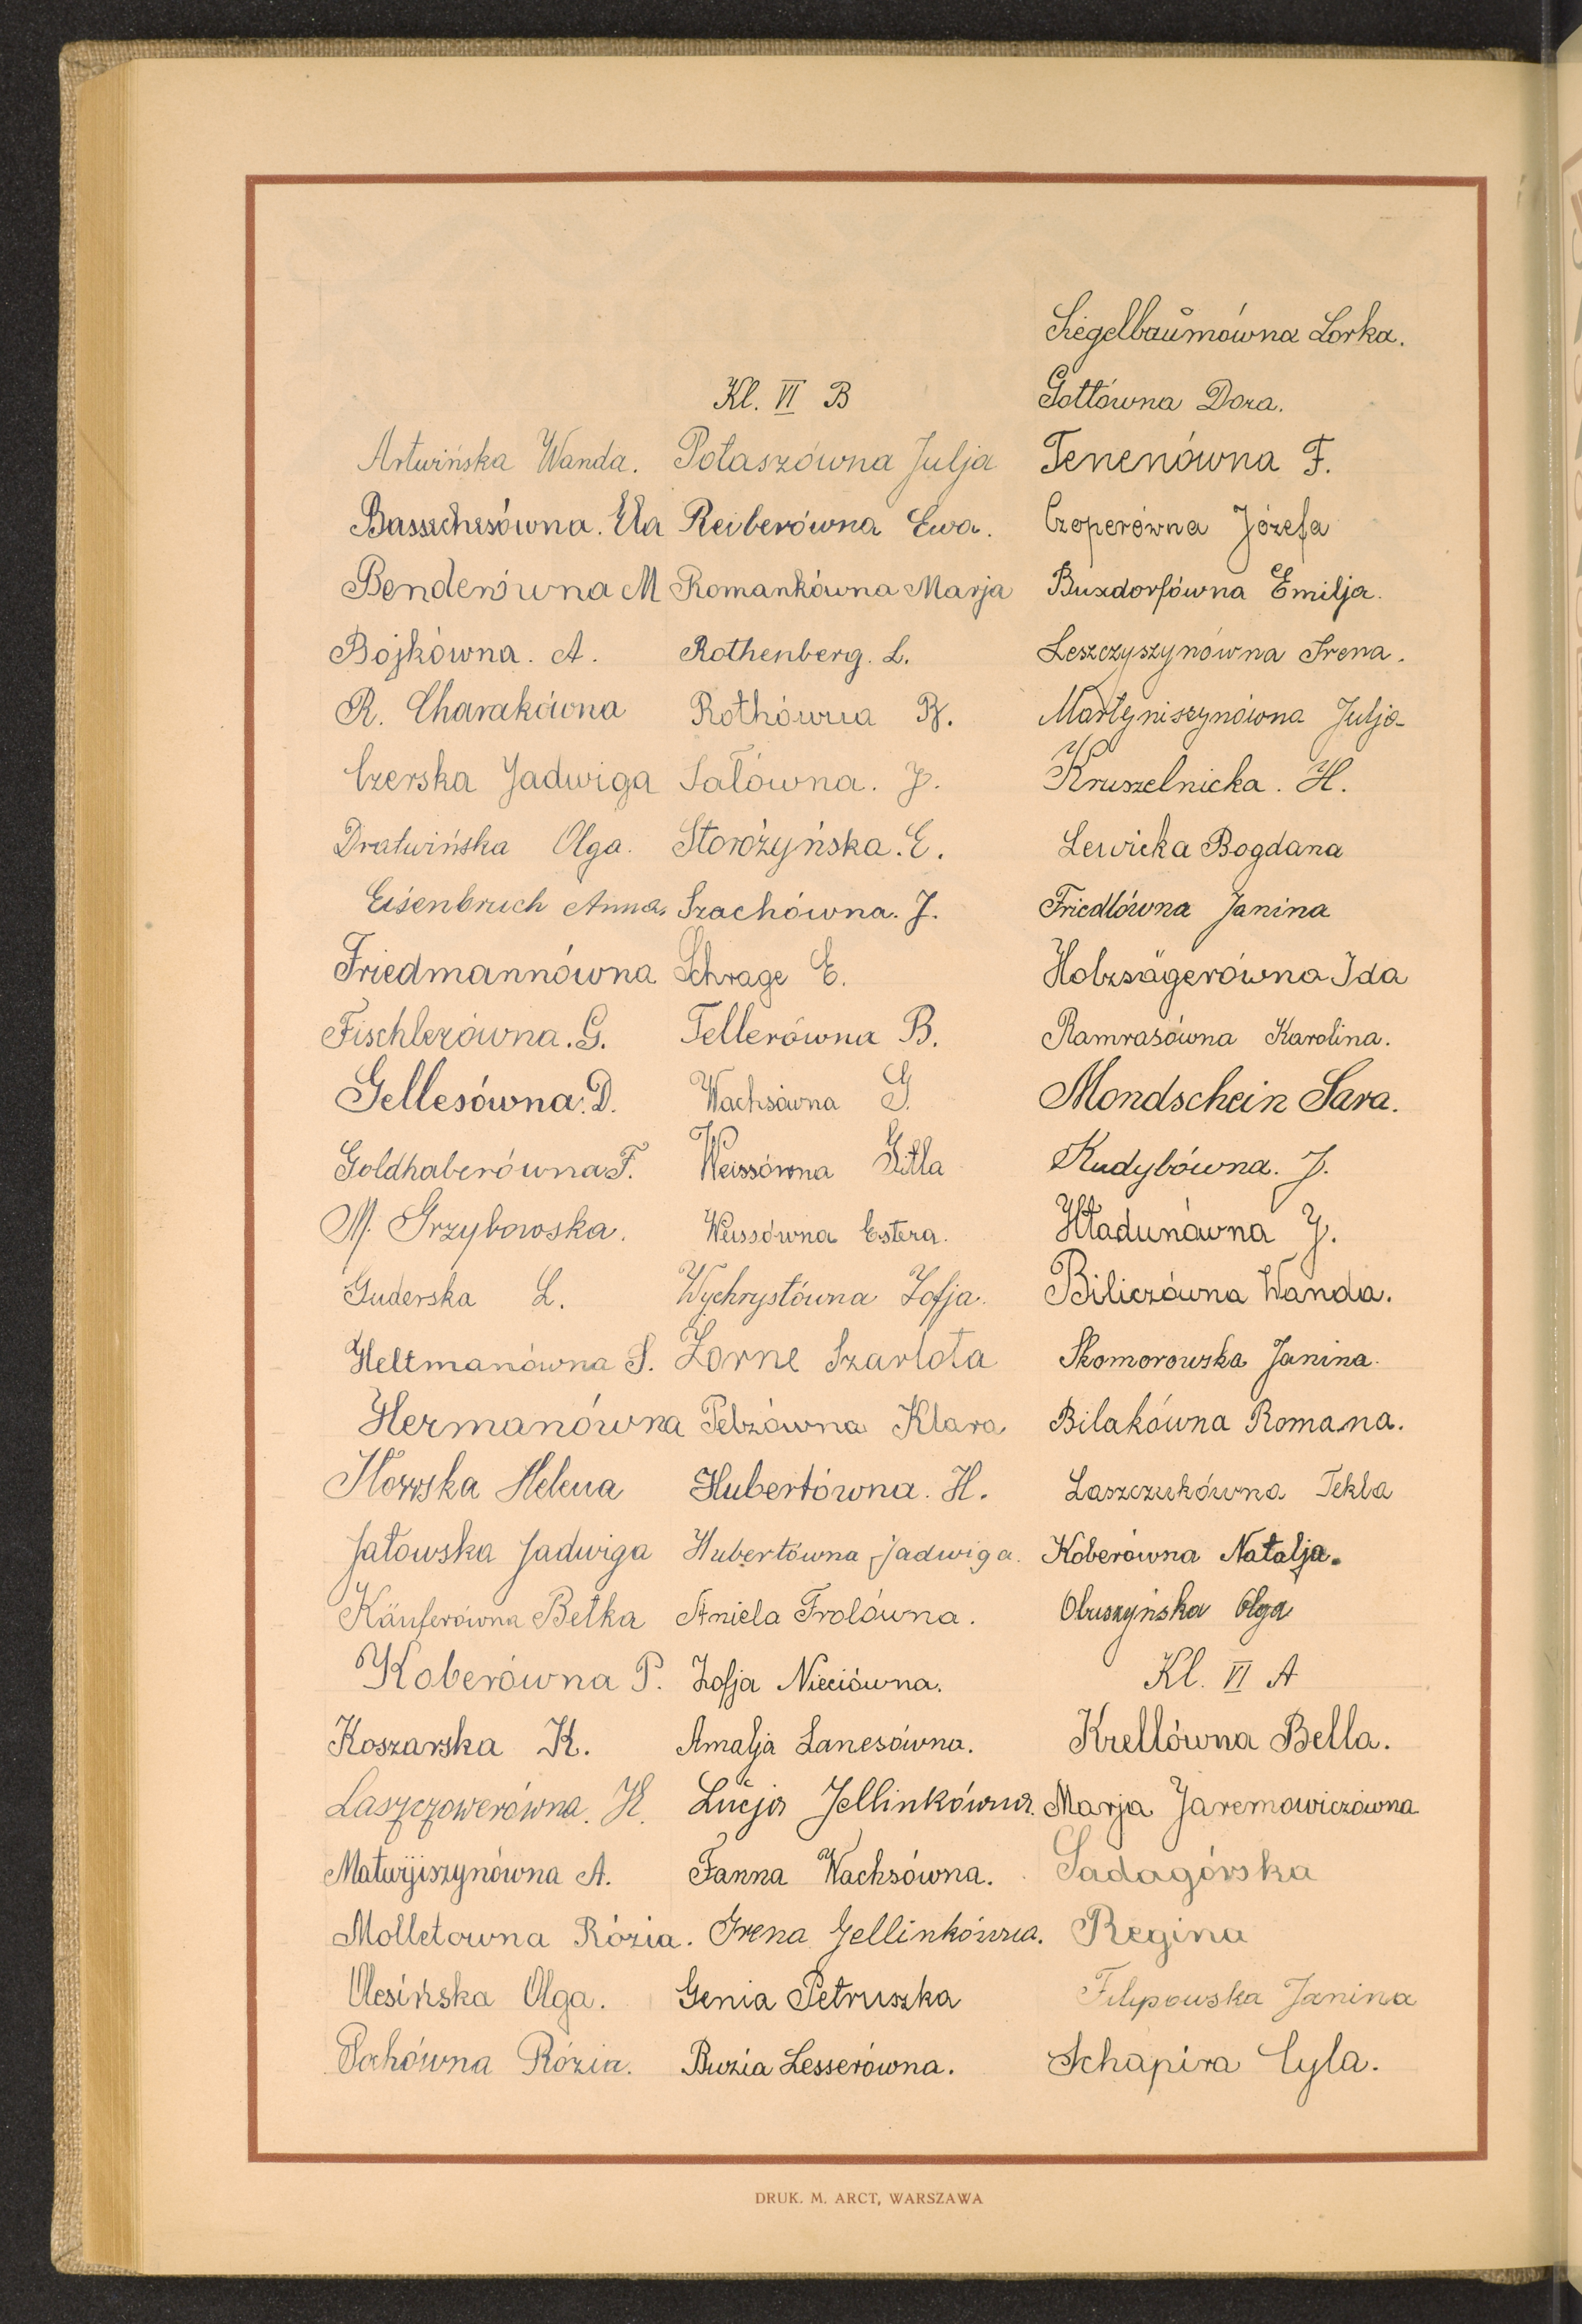 Kl. VI B
Artwińska Wanda.
Bassechesówna. Ela
Benderówna M
Bojkówna. A.
R. Charakówna
Czerska Jadwiga
Dratwińska Olga.
Eisenbruch Anna.
Friedmannówna
Fischlerówna. G.
Gellesówna. D.
Goldhaberówna F.
M. Grzybowska.
Guderska L.
Heltmanówna S.
Hermanówna
Helena
Jatowska Jadwiga
Käuferówna Betka
Koberówna P.
Koszarska K.
Laszczowerówna. H.
Matwijiszynówna A.
Molletowna Rózia.
Olesińska Olga.
Pochówna Rózia.
Potaszówna Julja
Reiberówna Ewa.
Romankówna Marja
Rothenberg. L.
Rothówna R.
Sałówna. J.
Storożyńska. E.
Szachówna. J.
Schrage E.
Tellerówna B.
Wachsówna G.
Weissówna Gitla
Weissówna Estera.
Wychrystówna Zofja.
Zorne Szarlota
Pelzówna Klara
Hubertówna. H.
Hubertówna Jadwiga.
Aniela Frolówna.
Zofja Nieciówna.
Amalja Lanesówna.
Lucja Jellinkówna.
Fanna Wachsówna.
Irena Jellinkówna.
Genia Petruszka
Buzia Lesserówna.
Siegelbaumówna Lorka.
Gottówna Dora.
Tenenówna F.
Czoperówna Józefa
Buxdorfówna Emilja.
Leszczyszynówna Irena.
Martyniszynówna Julja
Kruszelnicka. H.
Lewicka Bogdana
Friedlówna Janina
Holzsägerówna Ida
Ramrasówna Karolina.
Mondschein Sara.
Kudybówna. J.
Hładunówna J.
Biliczówna Wanda.
Skomorowska Janina.
Bilakówna Romana.
Laszczukówna Tekla
Koberówna Natalja.
Obuszyńska Olga
Kl. VI A
Krellówna Bella.
Marja Jaremowiczówna
Sadagórska
Regina
Filipowska Janina
Schapira Cyla.
DRUK. M. ARCT, WARSZAWA